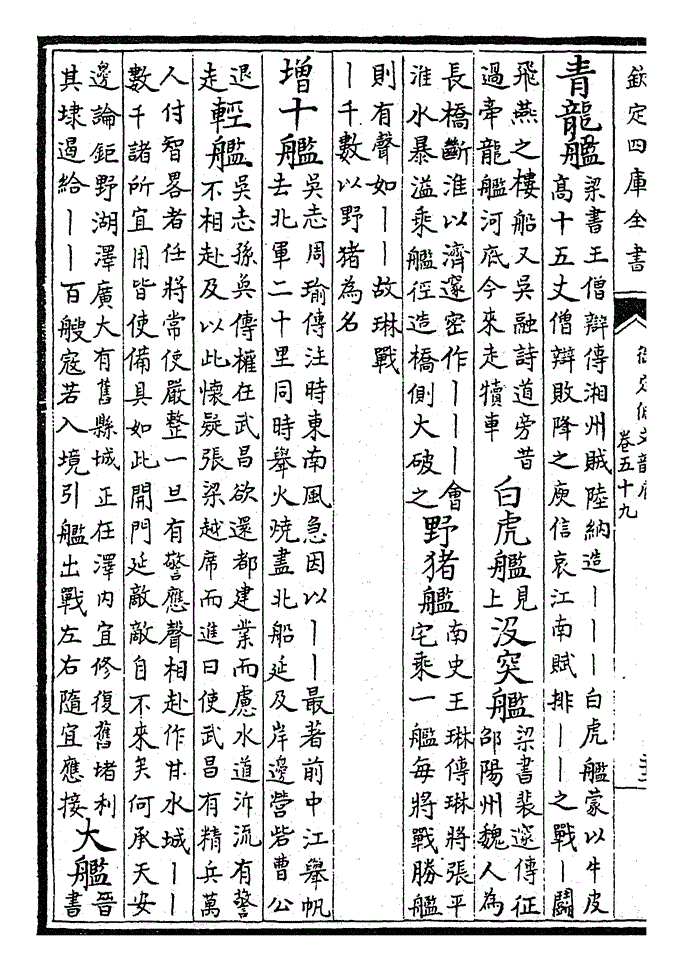 欽定四庫全書
卷五十九
青龍艦
梁書王僧辯傳湘州賊陸納造丨丨丨白虎艦蒙以牛皮
高十五丈僧辯敗降之庾信哀江南賦排丨丨之戰丨鬭
飛燕之樓船又吳融詩道旁昔
過牽龍艦河底今來走犢車
白虎艦
見
上
没突艦
梁書裴邃傳征
邵陽州魏人為
長橋斷淮以濟邃密作丨丨丨會
淮水暴溢乘艦徑造橋側大破之
野猪艦
南史王琳傳琳將張平
宅乘一艦每將戰勝艦
則有聲如丨丨故琳戰
丨千數以野猪為名
增十艦
吳志周瑜傳注時東南風急因以丨丨最著前中江舉帆
去北軍二十里同時舉火燒盡北船延及岸邊營砦曹公
退
走
輕艦
吳志孫奐傳權在武昌欲還都建業而慮水道泝流有警
不相赴及以此懷疑張梁越席而進曰使武昌有精兵萬
人付智畧者任將常使嚴整一旦有警應聲相赴作甘水城丨丨
數千諸所宜用皆使備具如此開門延敵敵自不來矣何承天安
邊論鉅野湖澤廣大有舊縣城正在澤内宜修復舊堵利
其埭遏給丨丨百艘寇若入境引艦出戰左右隨宜應接
大艦
晉
書